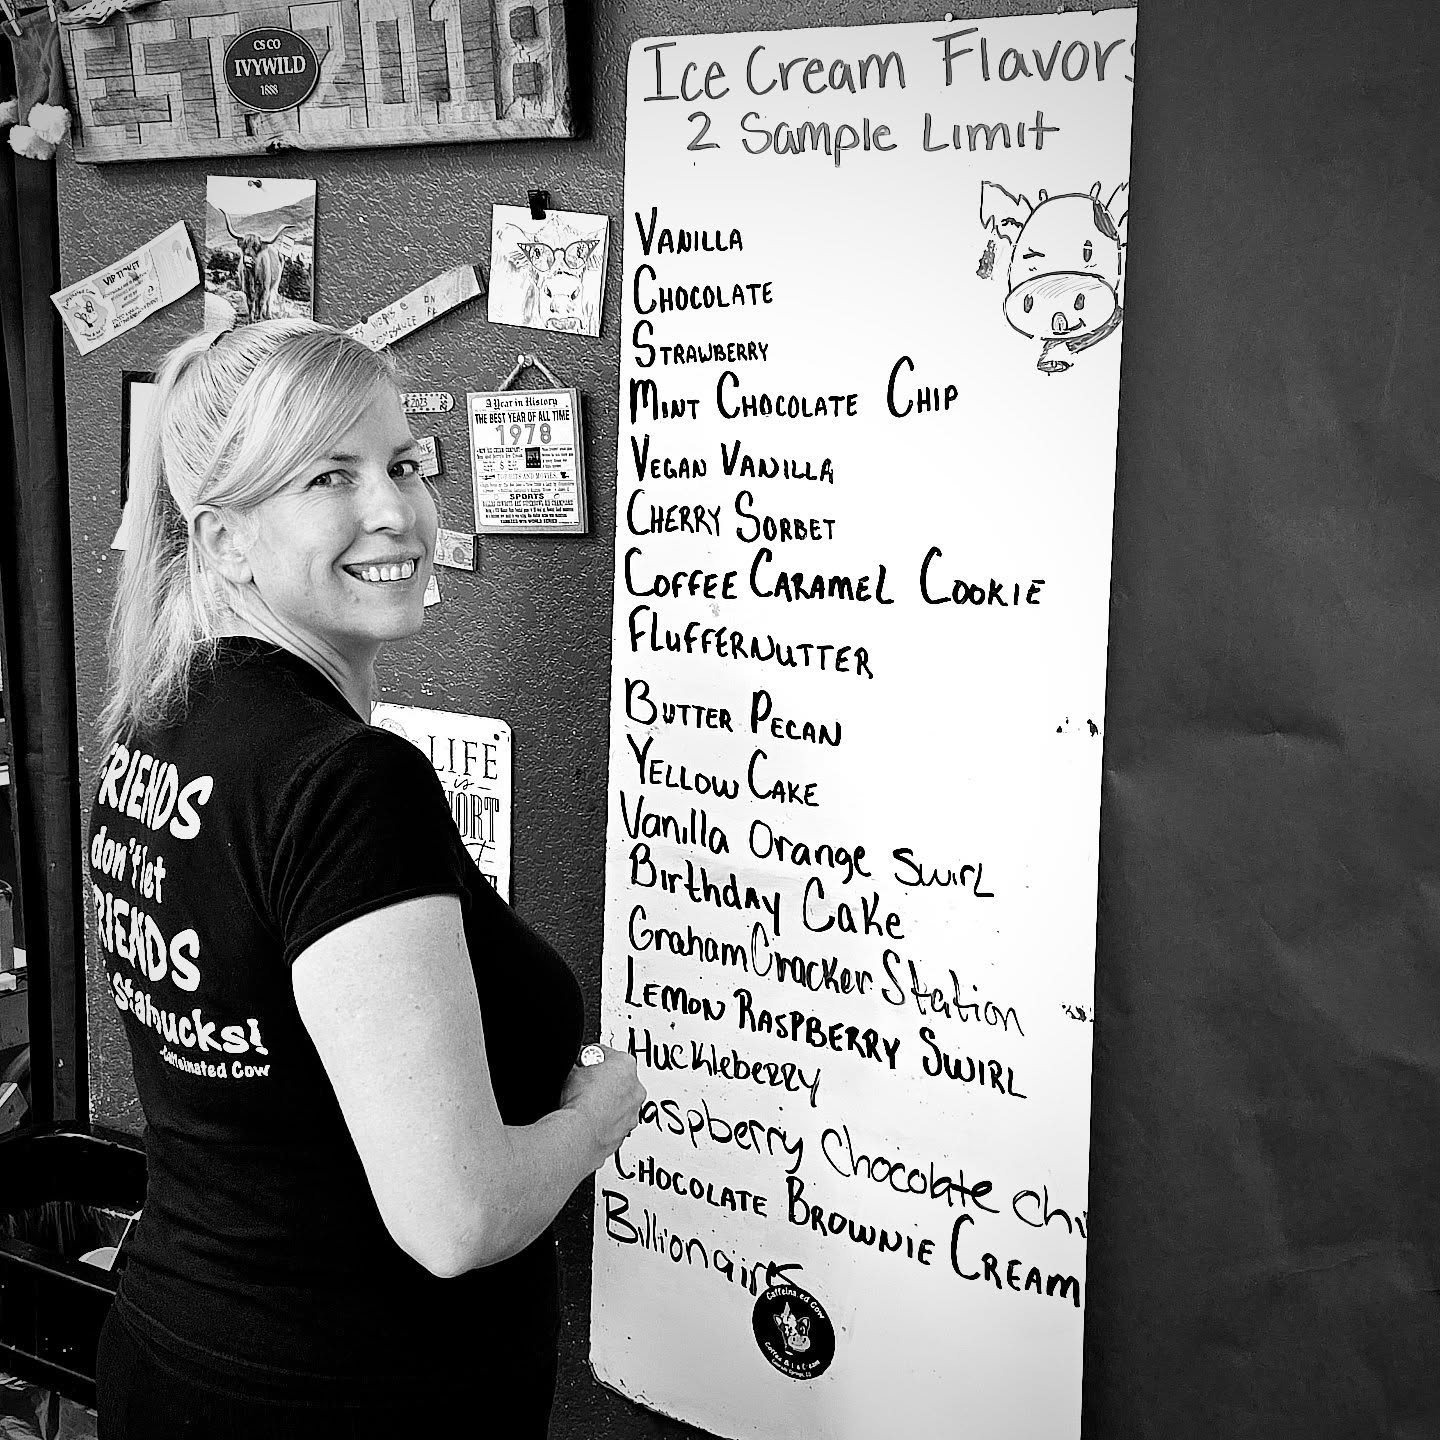 EST. 2018
CS CO
IVYWILD
1888
VIP TICKET
Ice Cream Flavors
2 Sample Limit
VANILLA
CHOCOLATE
STRAWBERRY
MINT CHOCOLATE CHIP
VEGAN VANILLA
CHERRY SORBET
COFFEE CARAMEL COOKIE
FLUFFERNUTTER
BUTTER PECAN
YELLOW CAKE
Vanilla Orange Swirl
Birthday Cake
Graham Cracker Station
LEMON RASPBERRY SWIRL
Huckleberry
aspberry Chocolate Chi
CHOCOLATE BROWNIE CREAM
Billionaires
Caffeina ed Cow
2023
A Year in History
THE BEST YEAR OF ALL TIME
1978
SPORTS
LIFE
is
HORT
FRIENDS
don't let
FRIENDS
Starbucks!
-Caffeinated Cow